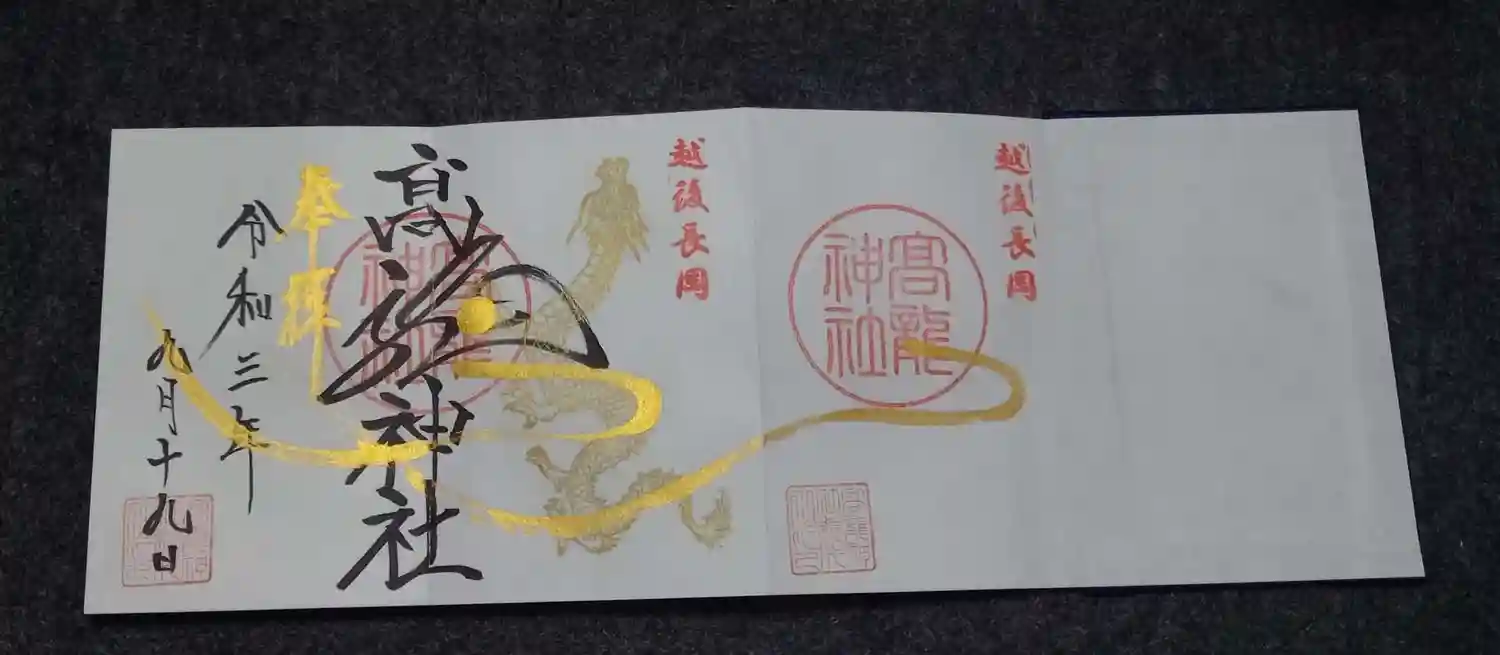 越後長岡
髙龍神社
越後長岡
髙龍神社
髙龍神社
奉拝
令和三年
九月十九日